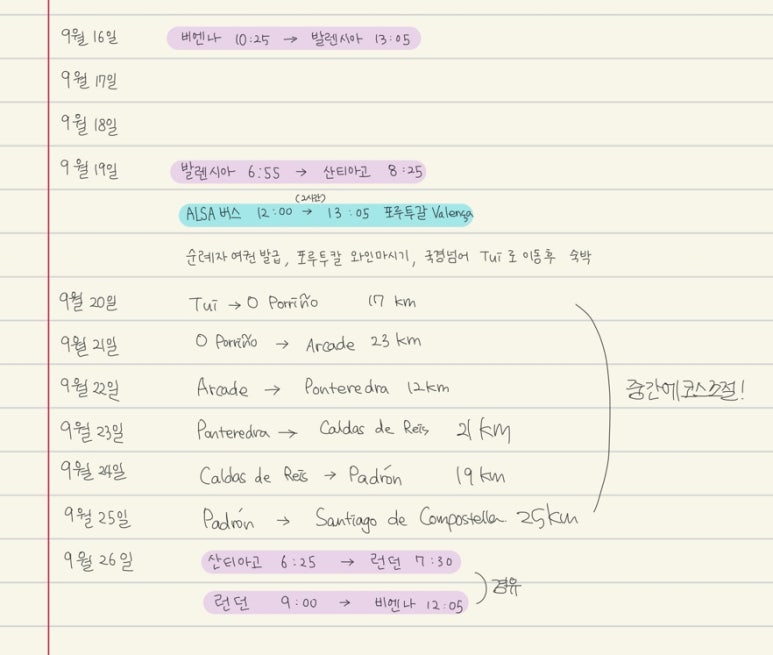 9월 16일 비엔나 10:25 → 발렌시아 13:05
9월 17일
9월 18일
9월 19일 발렌시아 6:55 → 산티아고 8:25
(2시간)
ALSA 버스 12:00 → 13:05 포루투갈 Valença
순례자 여권 발급, 포루투칼 와인마시기, 국경넘어 Tui 로 이동후 숙박
9월 20일 Tui → O Porriño 17 km
9월 21일 O Porriño → Arcade 23 km
9월 22일 Arcade → Ponteredra 12km
중간에 코스조절!
9월 23일 Ponteredra → Caldas de Reis 21 km
9월 24일 Caldas de Reis → Padrón 19 km
9월 25일 Padrón → Santiago de Compostella 25km
9월 26일 산티아고 6:25 → 런던 7:30
경유
런던 9:00 → 비엔나 12:05